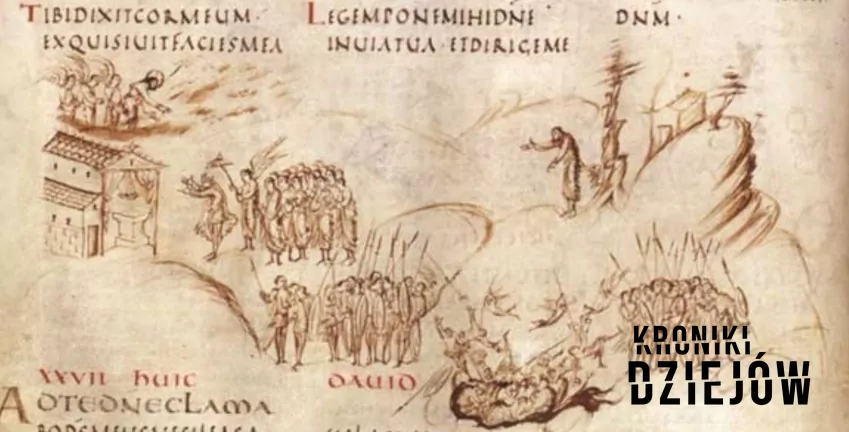 TIBIDIXITCORMEUM·
EXQUISIUITFACIESMEA
LEGEMPONEMIHIDNE
INUIATUA·ETDIRIGEME
DNM·
XXVII HUIC DAUID
ADTEDNECLAMA
KRONIKI
DZIEJÓW